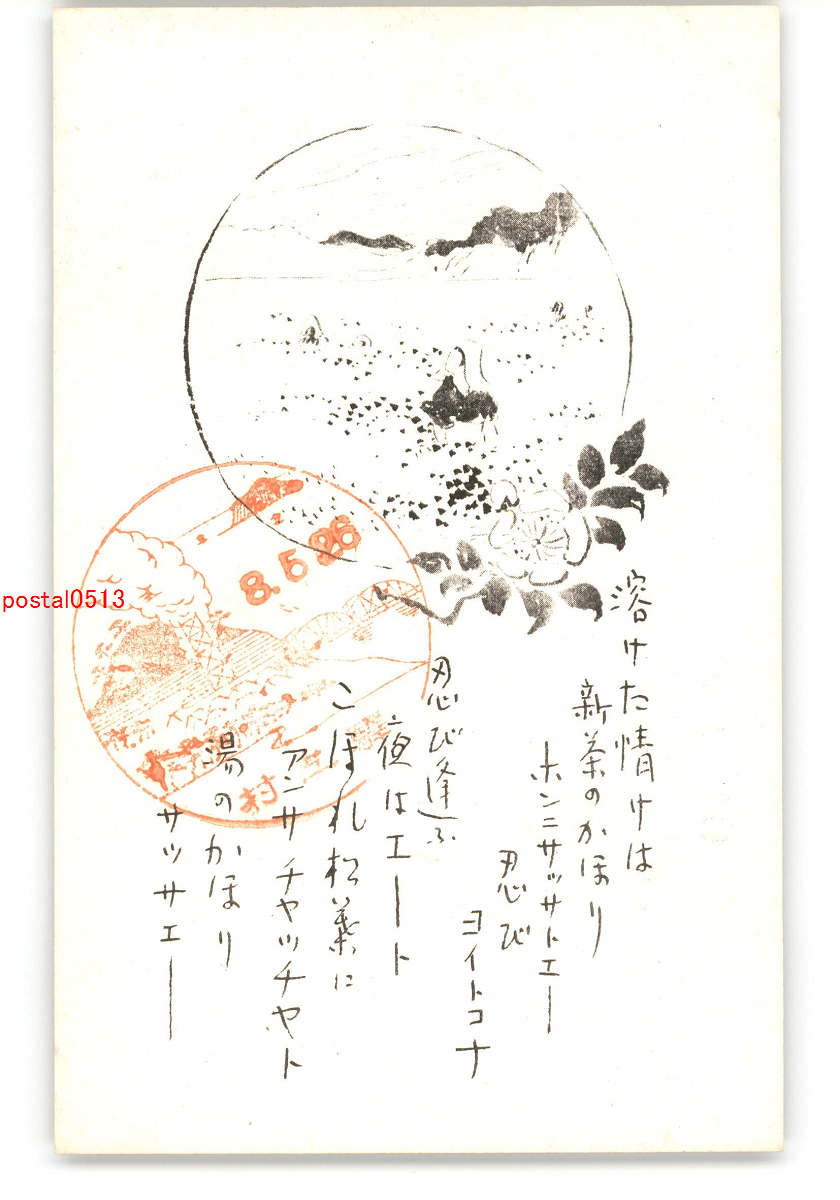 溶けた情けは
新茶のかほり
ホンニサッサトエー
忍び
ヨイトコナ
忍び逢ふ
夜はエート
こぼれ松葉に
アンサチャッチャト
湯のかほり
サッサエー
8.5.26
村
postal0513